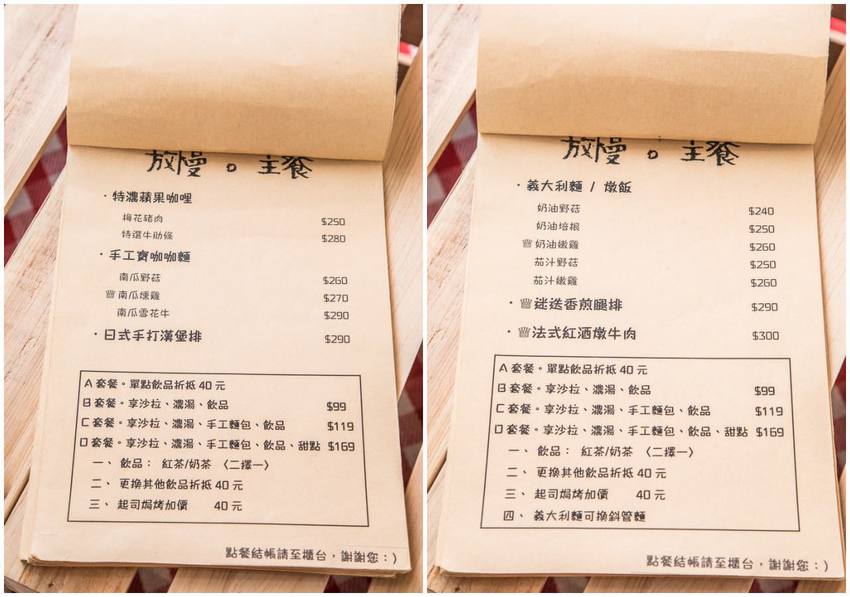 放慢。主餐
·特濃蘋果咖哩
梅花豬肉 $250
特選牛肋條 $280
·手工寶咖咖麵
南瓜野菇 $260
南瓜燻雞 $270
南瓜雪花牛 $290
·日式手打漢堡排 $290
A套餐。單點飲品折抵 40 元
B套餐。享沙拉、濃湯、飲品 $99
C套餐。享沙拉、濃湯、手工麵包、飲品 $119
D套餐。享沙拉、濃湯、手工麵包、飲品、甜點 $169
一、 飲品： 紅茶/奶茶 〈二擇一〉
二、 更換其他飲品折抵 40 元
三、 起司焗烤加價 40 元
點餐結帳請至櫃台，謝謝您：)
放慢。主餐
·義大利麵 / 燉飯
奶油野菇 $240
奶油培根 $250
奶油嫩雞 $260
茄汁野菇 $250
茄汁嫩雞 $260
·迷迭香煎腿排 $290
·法式紅酒燉牛肉 $300
A套餐。單點飲品折抵 40 元
B套餐。享沙拉、濃湯、飲品 $99
C套餐。享沙拉、濃湯、手工麵包、飲品 $119
D套餐。享沙拉、濃湯、手工麵包、飲品、甜點 $169
一、 飲品： 紅茶/奶茶 〈二擇一〉
二、 更換其他飲品折抵 40 元
三、 起司焗烤加價 40 元
四、 義大利麵可換斜管麵
點餐結帳請至櫃台，謝謝您：)